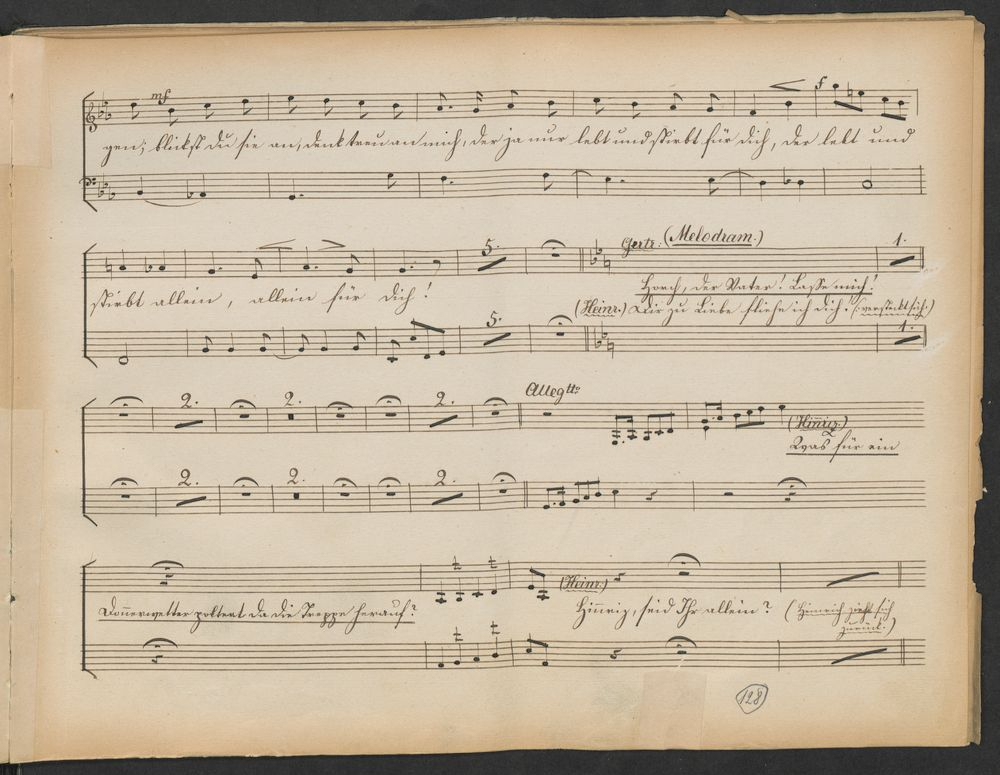 mf f
gen; blickst Du sie an, denk treu an mich, der ja nur lebt und stirbt für dich, der lebt und
5. Gertr. (Melodram.) 1.
stirbt allein, allein für dich! Horch, der Vater! Lasse mich!
(Heinr.) Dir zu Liebe fliehe ich dich. (: versteckt sich :)
5. 1.
2. 2. 2. Allegtto
(Hinriz.)
Was für ein
2. 2. 2.
t t
Donnerwetter poltert da die Treppe herauf? (Heinr.) Hinriz, seid Ihr allein? (Heinrich zieht sich
zurück.)
t t
128